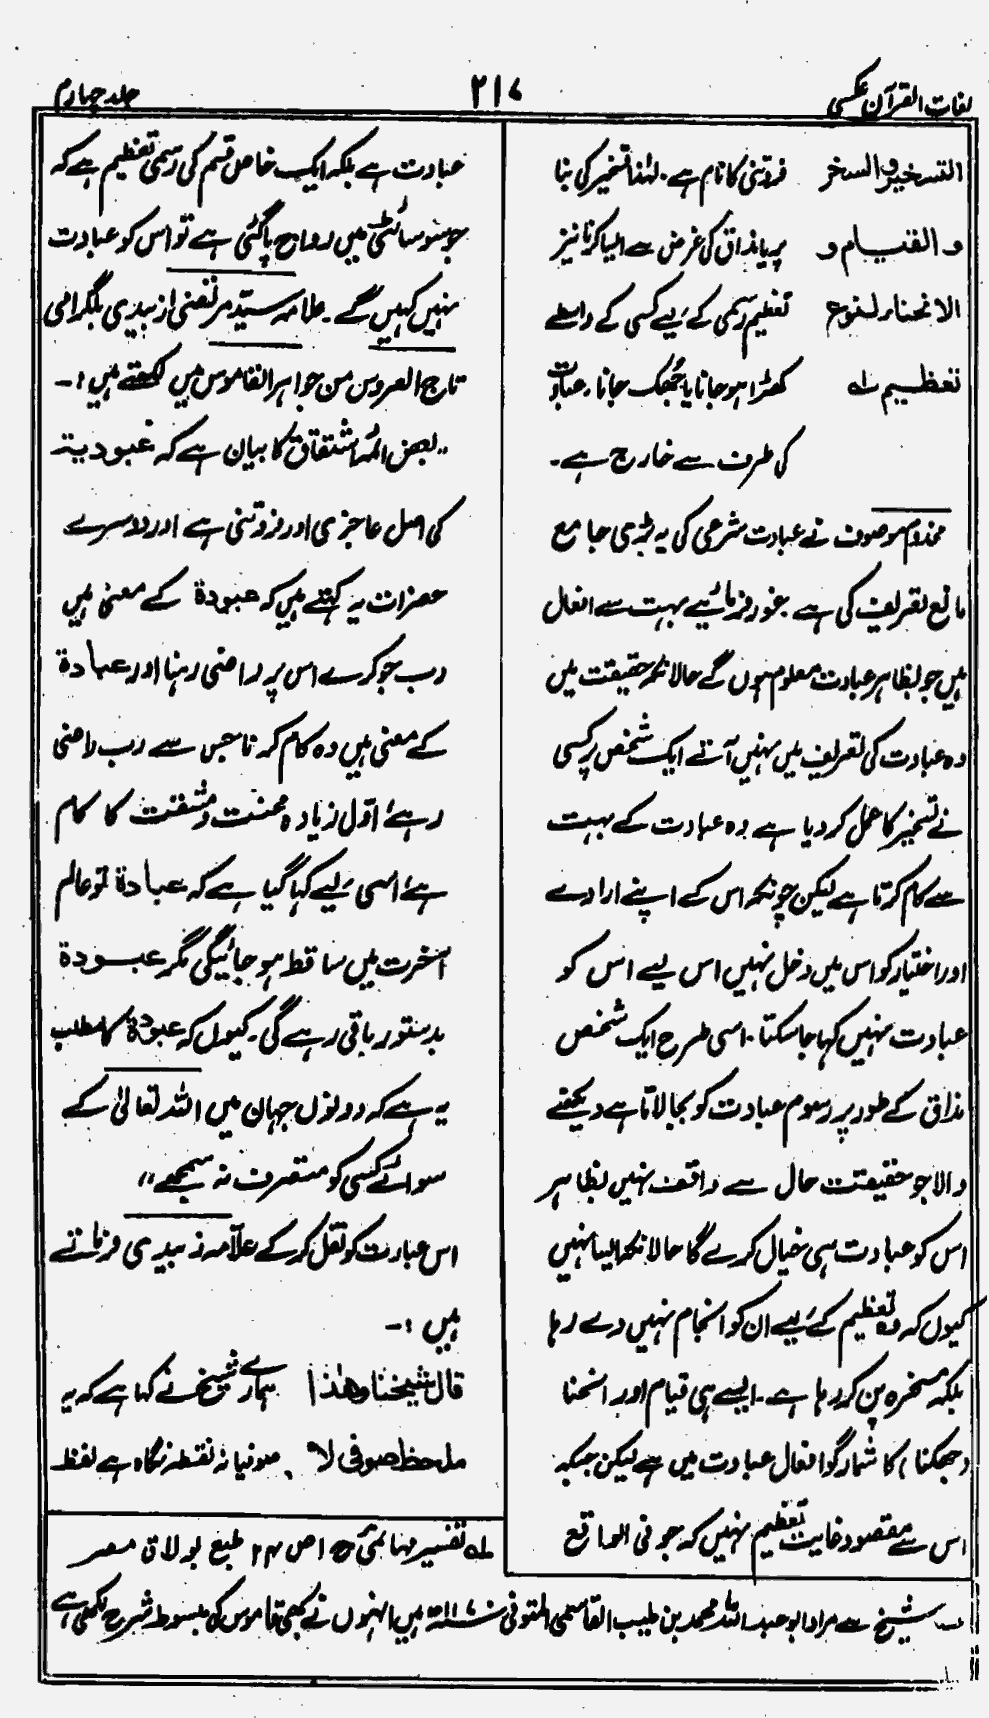 لغات القرآن عکسی
۲۱۷
جلد چہارم
التسخیر والسخر فروتنی کا نام ہے۔ لہٰذا تسخیر کی بنا
والقیام و پر یا مذاق کی غرض سے ایسا کرنا نیز
الانحناء لنوع تعظیم رسمی کے لیے کسی کے واسطے
تعظیم لہ کھڑا ہو جانا یا جھک جانا، عبادت
کی طرف سے خارج ہے۔
مخدوم موصوف نے عبادت شرعی کی یہ بڑی جامع
مانع تعریف کی ہے بغور فرمائیے بہت سے افعال
ہیں جو بظاہر عبادت معلوم ہوں گے حالانکہ حقیقت میں
وہ عبادت کی تعریف میں نہیں آتے ایک شخص پر کسی
نے تسخیر کا عمل کر دیا ہے وہ عبادت کے بہت
سے کام کرتا ہے لیکن چونکہ اس کے اپنے ارادے
اور اختیار کو اس میں دخل نہیں اس لیے اس کو
عبادت نہیں کہا جا سکتا۔ اسی طرح ایک شخص
مذاق کے طور پر رسوم عبادت کو بجا لاتا ہے دیکھنے
والا جو حقیقت حال سے واقف نہیں بظاہر
اس کو عبادت ہی خیال کرے گا حالانکہ ایسا نہیں
کیوں کہ وہ تعظیم کے لیے ان کو انجام نہیں دے رہا
بلکہ مسخرہ پن کر رہا ہے۔ ایسے ہی قیام اور انحنا
(جھکنا) کا شمار گو افعال عبادت میں ہے لیکن جبکہ
اس سے مقصود غایت تعظیم نہیں کہ جو فی الواقع
عبادت ہے بلکہ ایک خاص قسم کی رسمی تعظیم ہے کہ
جو سوسائٹی میں رواج پا گئی ہے تو اس کو عبادت
نہیں کہیں گے۔ علامہ سید مرتضی زبیدی بلگرامی
تاج العروس من جواہر القاموس میں لکھتے ہیں:۔
"بعض ائمہ اشتقاق کا بیان ہے کہ عبودیۃ
کی اصل عاجزی اور فروتنی ہے اور دوسرے
حضرات یہ کہتے ہیں کہ عبودۃ کے معنی ہیں
رب جو کرے اس پر راضی رہنا اور عبادۃ
کے معنی ہیں وہ کام کرنا جس سے رب راضی
رہے، اوّل زیادہ محنت و مشقت کا کام
ہے، اسی لیے کہا گیا ہے کہ عبادۃ تو عالم
آخرت میں ساقط ہو جائیگی مگر عبودۃ
بدستور باقی رہے گی۔ کیوں کہ عبودۃ کا مطلب
یہ ہے کہ دونوں جہان میں اللہ تعالیٰ کے
سوائے کسی کو متصرف نہ سمجھے"
اس عبارت کو نقل کر کے علّامہ زبیدی فرماتے
ہیں:۔
قال شیخنا وھذا ہمارے شیخ نے کہا ہے کہ یہ
ملحظ صوفی لا صوفیانہ نقطہ نگاہ ہے لفظ
لہ تفسیر مہائمی ج ۱ ص ۲۴ طبع بولاق مصر
شیخ سے مراد ابو عبد اللہ محمد بن طیب القاسمی المتوفی سنہ ۱۱۷۰ھ ہیں انہوں نے بھی قاموس کی مبسوط شرح لکھی ہے